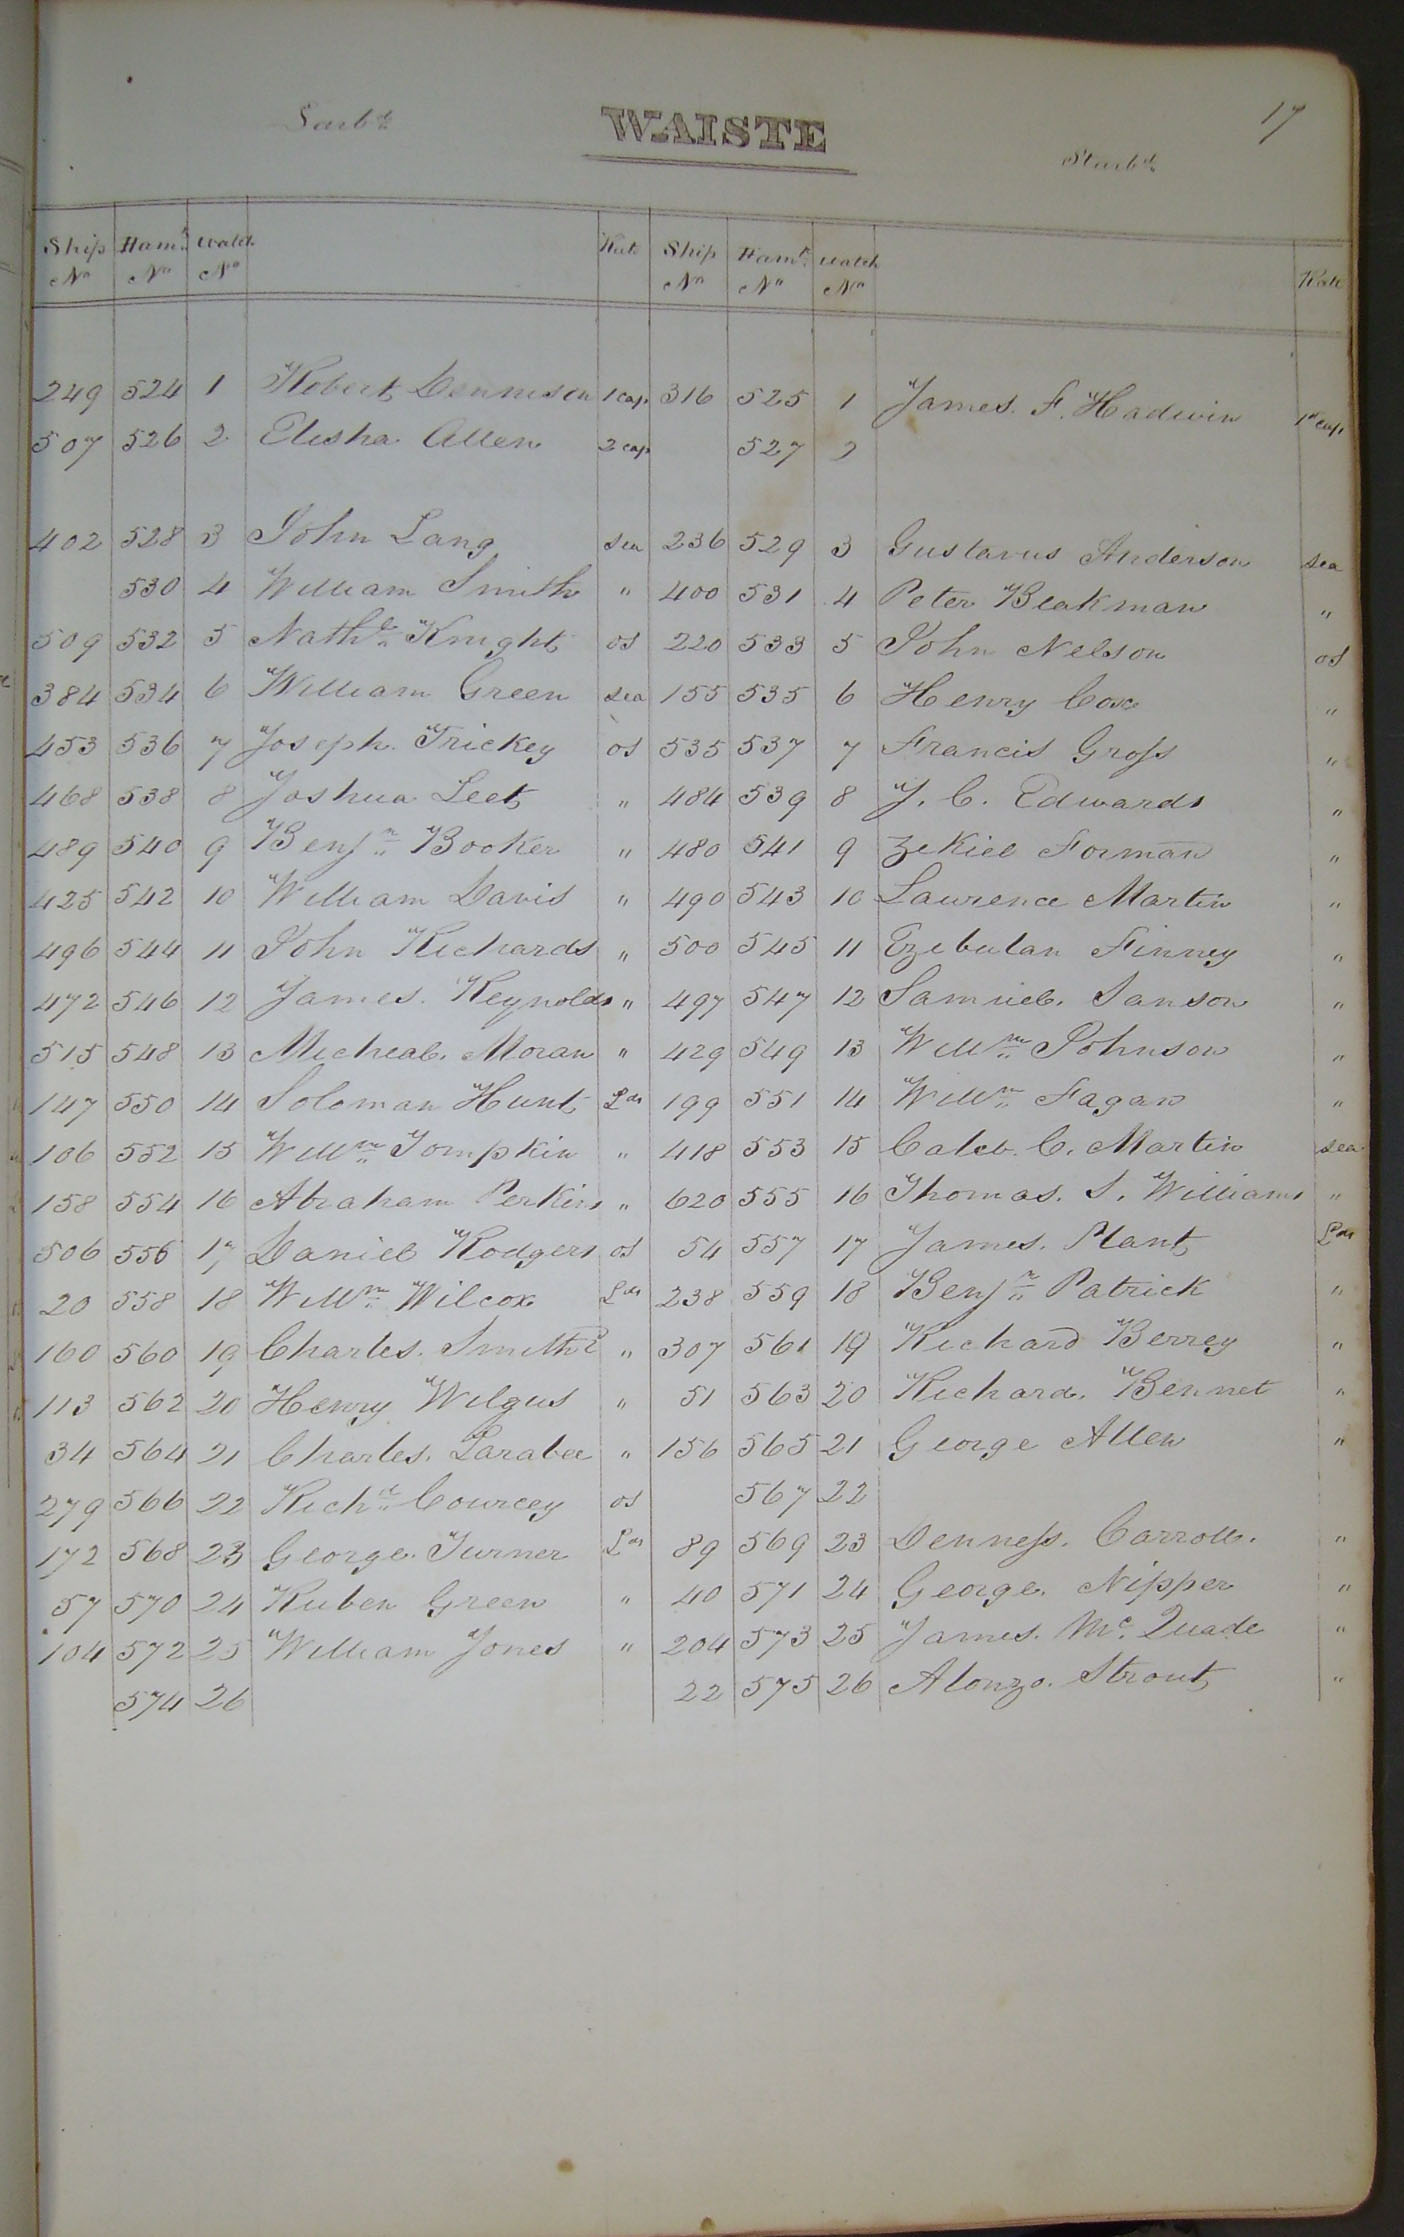 17
Larbd WAISTE Starbd
Ship Hamk Watch Rate Ship Hamk Watch Rate
No No No No No No
249 524 1 Robert Dennison 1 cap 316 525 1 James. F. Hadwin 1st cap
507 526 2 Elisha Allen 2 cap 527 2
402 528 3 John Lang Sea 236 529 3 Gustavus Anderson Sea
530 4 William Smith " 400 531 4 Peter Beakman "
509 532 5 Nathl Knight os 220 533 5 John Nelson os
384 534 6 William Green Sea 155 535 6 Henry Cox "
453 536 7 Joseph. Trickey os 535 537 7 Francis Gross "
468 538 8 Joshua Leet " 484 539 8 J. C. Edwards "
489 540 9 Benjn Booker " 480 541 9 Zekiel Forman "
425 542 10 William Davis " 490 543 10 Laurence Martin "
496 544 11 John Richards " 500 545 11 Ezebulan Finney "
472 546 12 James. Reynolds " 497 547 12 Samuel. Sanson "
515 548 13 Micheal. Moran " 429 549 13 Willm Johnson "
147 550 14 Soloman Hunt Lds 199 551 14 Willm Fagan "
106 552 15 Willm Tompkin " 418 553 15 Caleb. C. Martin Sea
158 554 16 Abraham Perkins " 620 555 16 Thomas. S. Williams "
506 556 17 Daniel Rodgers os 54 557 17 James. Plant Lds
20 558 18 Willm Wilcox Lds 238 559 18 Benjn Patrick "
160 560 19 Charles. Smith 2 " 307 561 19 Richard Berrey "
113 562 20 Henry Wilgus " 51 563 20 Richard. Bennet "
34 564 21 Charles. Larabee " 156 565 21 George Allen "
279 566 22 Richd Courcey os 567 22
172 568 23 George. Turner Lds 89 569 23 Denness. Carroll. "
57 570 24 Ruben Green " 40 571 24 George. Nipper "
104 572 25 William Jones " 204 573 25 James. Mc. Quade "
574 26 22 575 26 Alonzo. Strout "